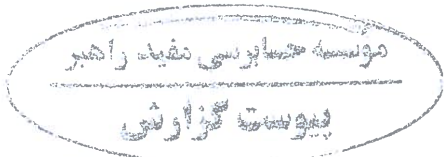 موسسه حسابرسی مفید راهبر
پیوست گزارش